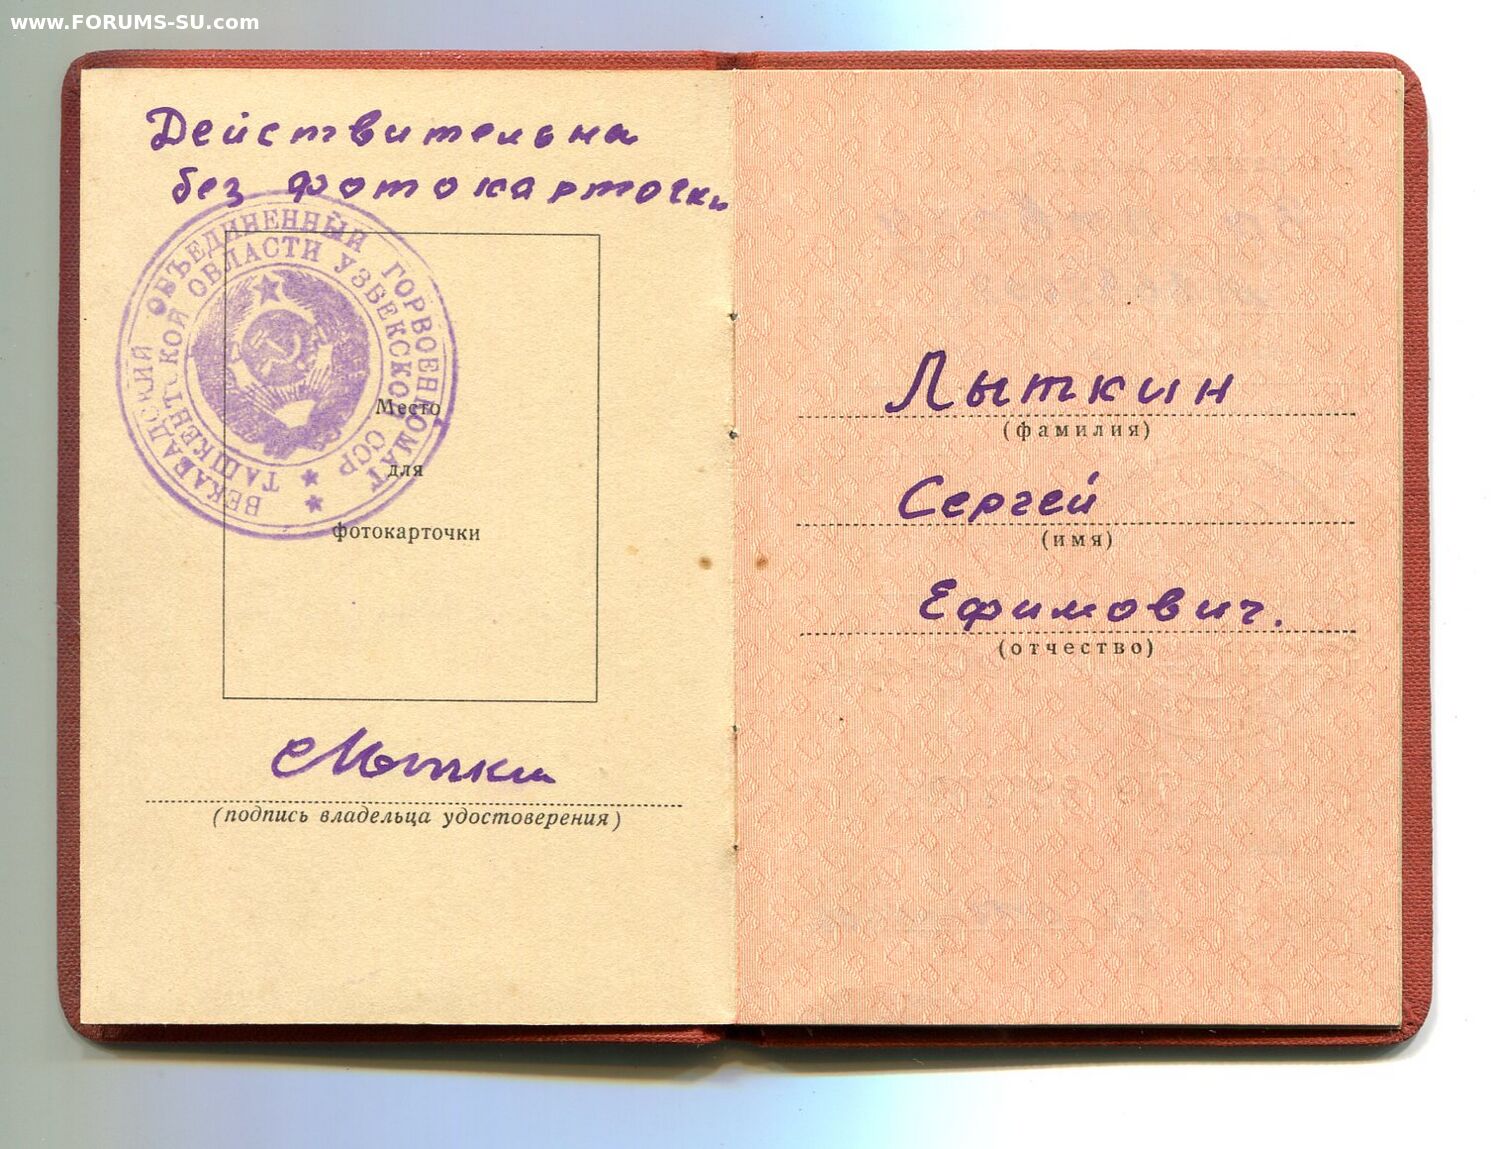 www.FORUMS-SU.com
Действительна
без фотокарточки
БЕКАБАДСКИЙ ОБЪЕДИНЕННЫЙ ГОРВОЕНКОМАТ
ТАШКЕНТСКОЙ ОБЛАСТИ УЗБЕКСКОЙ ССР
Место
для
фотокарточки
(подпись владельца удостоверения)
Лыткин
(фамилия)
Сергей
(имя)
Ефимович.
(отчество)